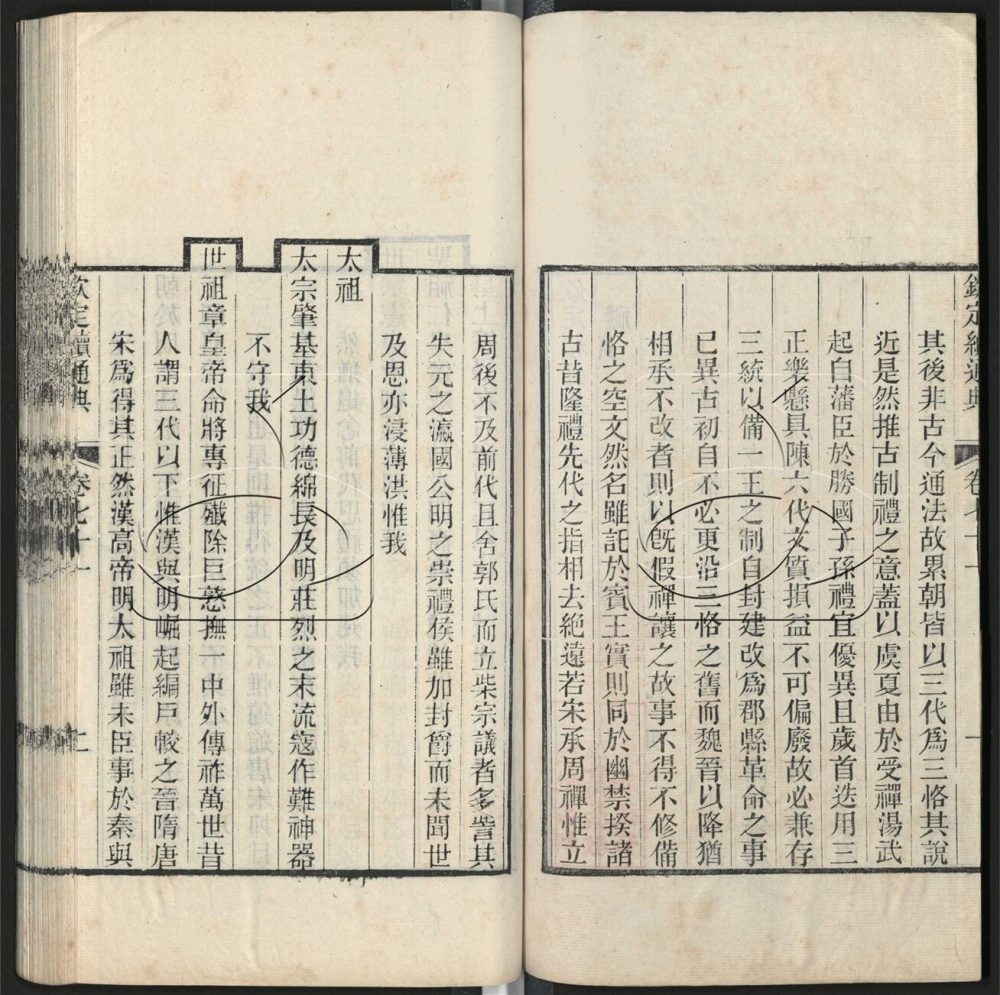 欽定續通典 卷七十一 一
其後非古今通法故累朝皆以三代爲三恪其說
近是然推古制禮之意蓋以虞夏由於受禪湯武
起自藩臣於勝國子孫禮宜優異且歲首迭用三
正樂懸具陳六代文質損益不可偏廢故必兼存
三統以備一王之制自封建改爲郡縣革命之事
已異古初自不必更沿三恪之舊而魏晉以降猶
相承不改者則以旣假禪讓之故事不得不修備
恪之空文然名雖託於賓王實則同於幽禁揆諸
古昔隆禮先代之指相去絶遠若宋承周禪惟立
周後不及前代且舍郭氏而立柴宗議者多訾其
失元之瀛國公明之崇禮侯雖加封爵而未聞世
及思亦浸薄洪惟我
太祖
太宗肇基東土功德綿長及明莊烈之末流寇作難神器
不守我
世祖章皇帝命將專征殲除巨憝撫一中外傳祚萬世昔
人謂三代以下惟漢與明崛起編戶較之晉隋唐
宋爲得其正然漢高帝明太祖雖未臣事於秦與
欽定續通典 卷七十一 二